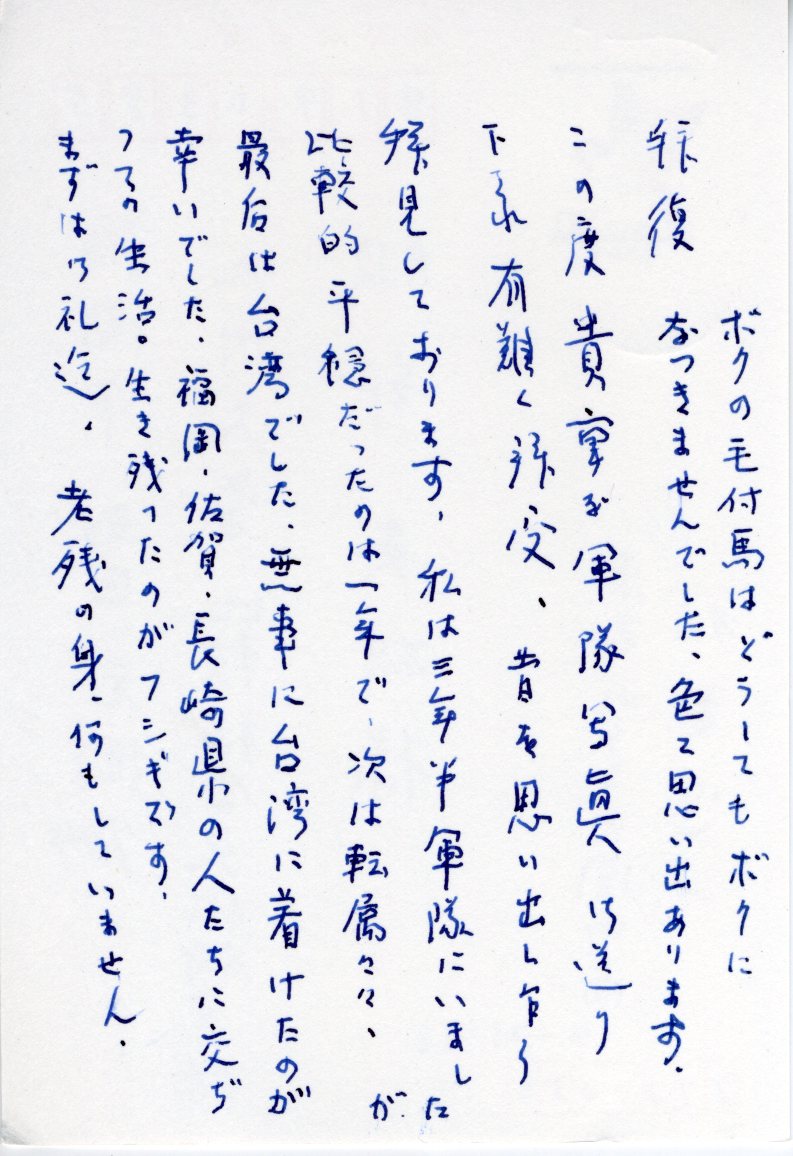 ボクの毛付馬はどうしてもボクに
なつきませんでした、色々思い出あります。
拝復
この度貴重な軍隊写真御送り
下され有難く拝受、昔を思い出し乍ら
拝見しております、私は三年半軍隊にいました
が
比較的平穏だったのは一年で、次は転属々々、
最后は台湾でした、無事に台湾に着けたのが
幸いでした、福岡、佐賀、長崎県の人たちに交ぢ
っての生活。生き残ったのがフシギです、
まずは御礼迄、老残の身、何もしていません、